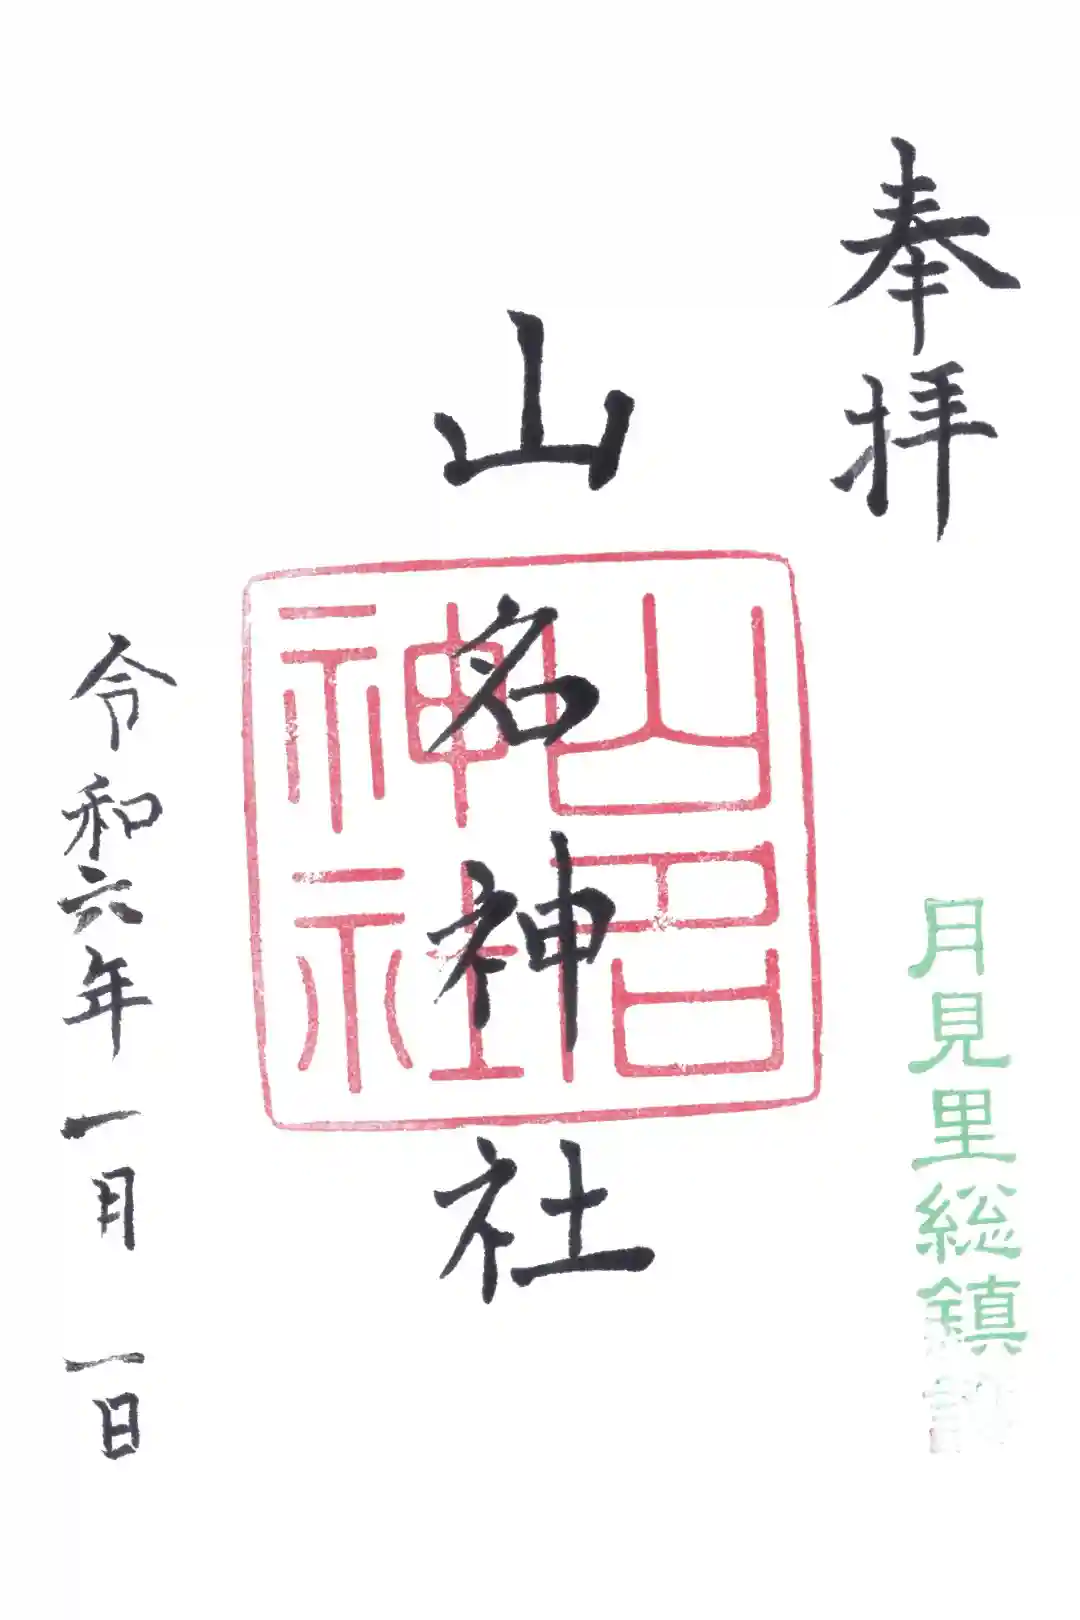 奉拝
月見里総鎮護
山名神社
山名神社
令和六年一月一日